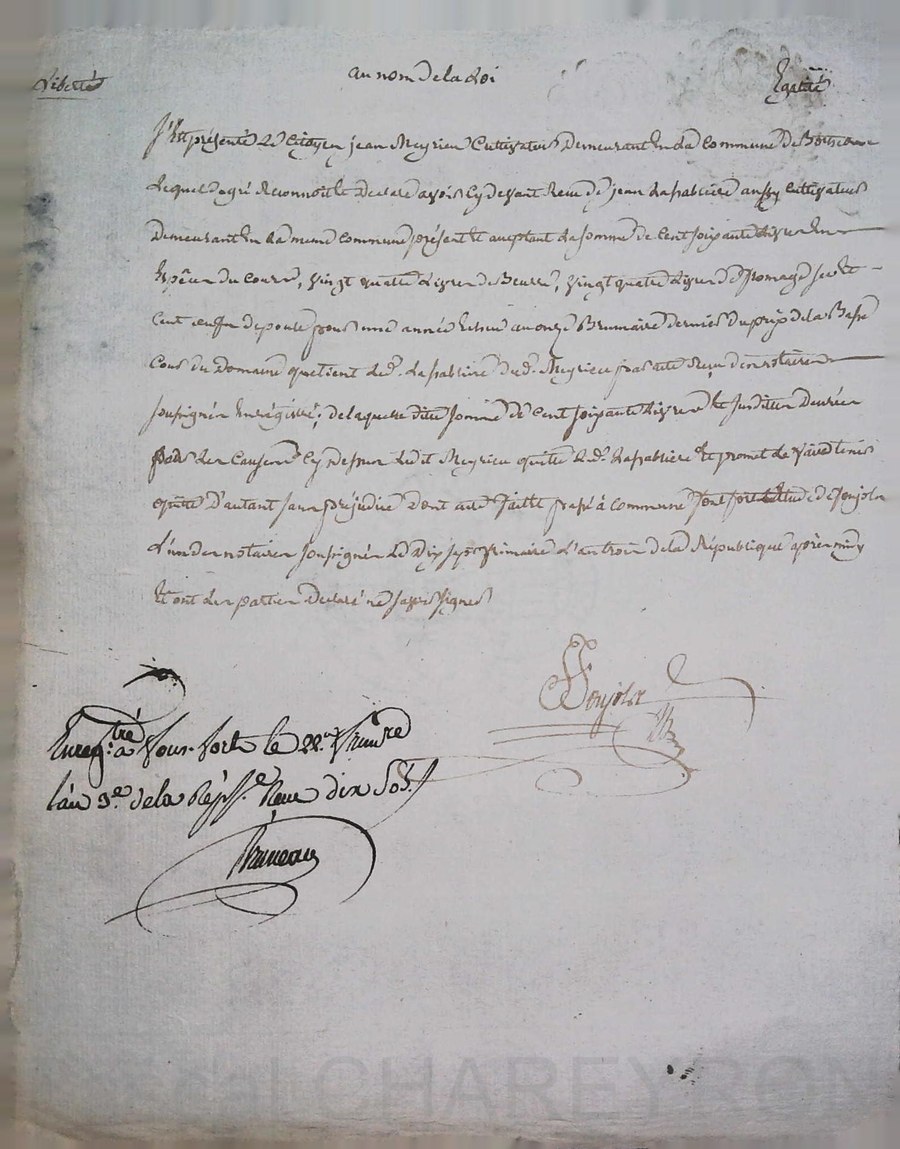 Liberté au nom de la Loi Egalité
S'est présenté Le Citoyen jean Meyrieu Cultivateur Demeurant En La Commune De
Lequel De gré Reconnoit Et Declare avoir Cy devant Receu De jean Lapabliere aussy Cultivateur
Demeurant En La meme Commune présent Et acceptant La somme De Cent soixante Livres En
Espêces du Cours, vingt quatre Livres De Beurre, vingt quatre Livres De fromage sec Et
Cent oeufs de poule pour une année Echeue au onze Brumaire dernier Du prix de la Basse
Cour du Domaine que tient Led. Lapabliere Dud. Meyrieu par acte Reçu D'un notaire
soussignés Enregistré; De laquelle ditte somme De Cent soixante Livres Et susdittes Denrées
pour Les Causes Cy Dessus Ledit Meyrieu quitte Led. Lapabliere Et promet de L'en faire tenir
quitte D'autant sans préjudice Dont acte fait Et passé à Commune Etude de Soujola
L'un des notaires soussignés Le Dix sept frimaire L'an trois de la République après midy
Et ont Les parties Declaré ne savoir signer
Soujola
Enregtré. à le 22e. frimaire
l'an 3e. de la Répub.e Receu dix Sols.
Bruneau
al CHAREYRON